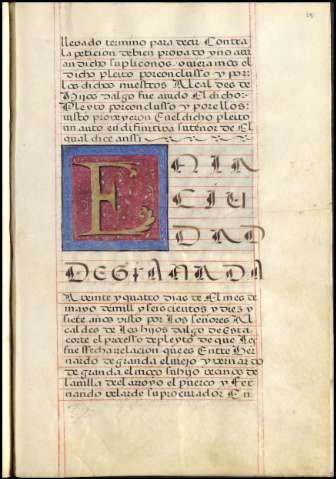 lleuado termino para decir Contra
la peticion debien probado y no abri
an dicho suplico nos ouieramos el
dicho pleito por concluso y por
los dichos nuestros Alcaldes de
Hijos dalgo fue auido El dicho
Pleyto por conclusso y por ellos
uisto proueyeron En el dicho pleito
un auto en difinitiua su tenor de El
qual dice anssi
EN LA
CIU
DAD
DE GRANADA
A veinte y quatro dias de El mes de
mayo de mill y seis cientos y diez y
siete años visto por Los señores Al
caldes de Los hijos dalgo de Esta
corte el processo de pleyto de que Les
fue ffecha relacion que es Entre Ber
nardo de granda el uiejo y bernardo
de granda el moço su hijo vecinos de
la uilla de el arroyo el puerco y fer
nando velarde su procurador En